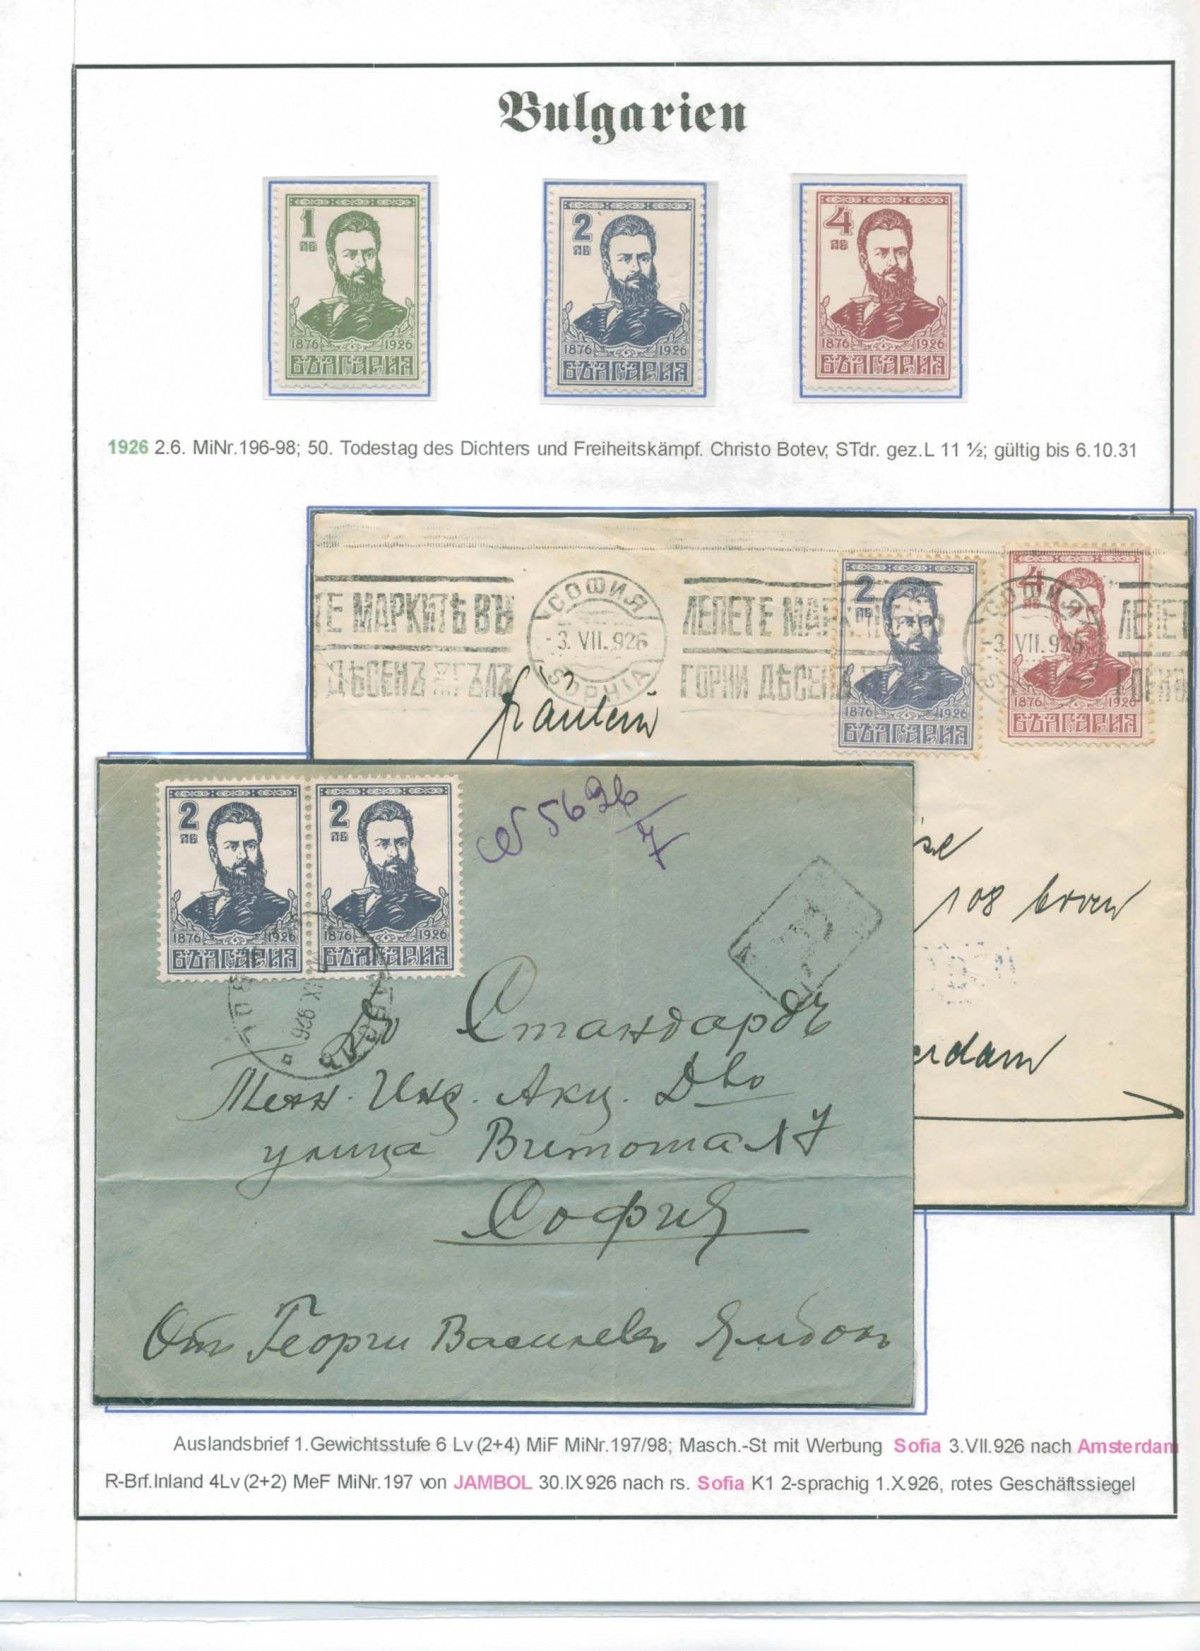 Bulgarien
1 лв 1876 1926 БЪЛГАРИЯ
2 лв 1876 1926 БЪЛГАРИЯ
4 лв 1876 1926 БЪЛГАРИЯ
1926 2.6. MiNr.196-98; 50. Todestag des Dichters und Freiheitskämpf. Christo Botev, STdr. gez.L 11 ½; gültig bis 6.10.31
Е МАРКИТѢ ВЪ
ДѢСЕНЪ ЖГЪЛЪ
СОФИЯ
-3. VII. 926
SOPHIA
ЛЕПЕТЕ МАРК
ГОРНИ ДѢСЕНЪ
2 лв 1876 1926 БЪЛГАРИЯ
СОФИЯ
-3. VII. 926
4 лв 1876 1926 БЪЛГАРИЯ
ЛЕПЕТ
ГОРН
Fräulein
108 boven
erdam
2 лв 1876 1926 БЪЛГАРИЯ
2 лв 1876 1926 БЪЛГАРИЯ
IX. 926
R
Стандардъ
Менн. Инд. Акц. Д-во
улица Витоша № 7
София
Отъ Георги Василевъ Ямболъ
Auslandsbrief 1.Gewichtsstufe 6 Lv (2+4) MiF MiNr.197/98; Masch.-St mit Werbung Sofia 3.VII.926 nach Amsterdam
R-Brf.Inland 4Lv (2+2) MeF MiNr.197 von JAMBOL 30.IX.926 nach rs. Sofia K1 2-sprachig 1.X.926, rotes Geschäftssiegel